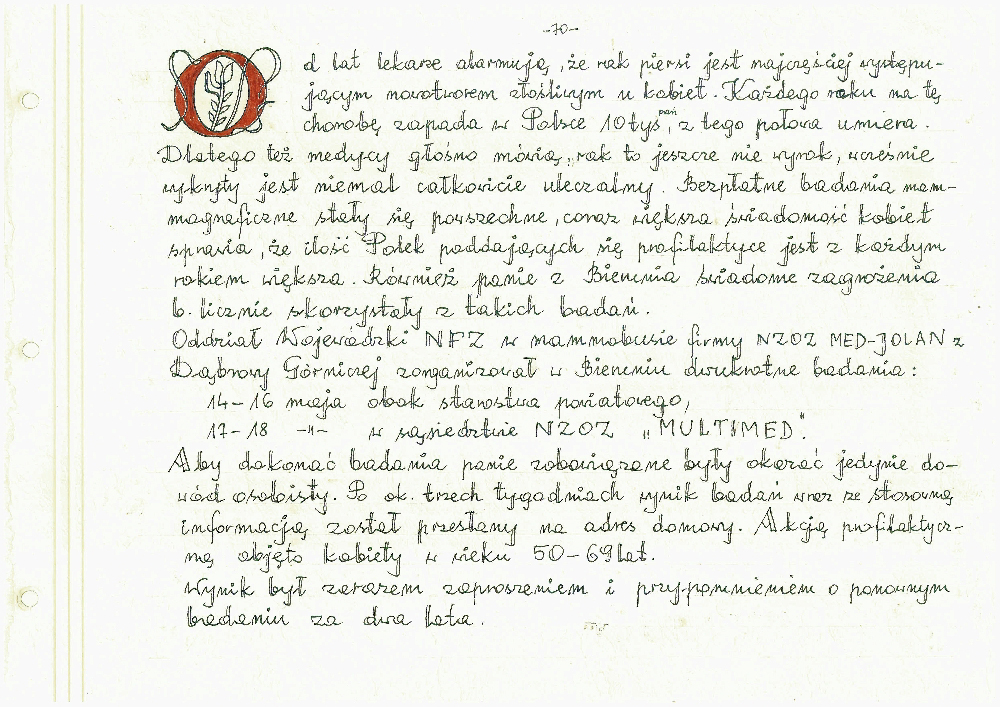 -70-
Od lat lekarze alarmują, że rak piersi jest najczęściej występu-
jącym nowotworem złośliwym u kobiet. Każdego roku na tę
chorobę zapada w Polsce 10 tys pań, z tego połowa umiera.
Dlatego też medycy głośno mówią, rak to jeszcze nie wyrok, wcześnie
wykryty jest niemal całkowicie uleczalny. Bezpłatne badania mam-
magraficzne stały się powszechne, coraz większa świadomość kobiet
sprawia, że ilość Polek poddających się profilaktyce jest z każdym
rokiem większa. Również panie z Bierunia świadome zagrożenia
b. licznie skorzystały z takich badań.
Oddział Wojewódzki NFZ w mammobusie firmy NZOZ MED-JOLAN z
Dąbrowy Górniczej zorganizował w Bieruniu dwukrotne badania:
14-16 maja obok starostwa powiatowego,
17-18 -"- w sąsiedztwie NZOZ „MULTIMED".
Aby dokonać badania panie zobowiązane były okazać jedynie do-
wód osobisty. Po ok. trzech tygodniach wynik badań wraz ze stosowną
informacją został przesłany na adres domowy. Akcją profilaktycz-
ną objęto kobiety w wieku 50-69 lat.
Wynik był zarazem zaproszeniem i przypomnieniem o ponownym
badaniu za dwa lata.